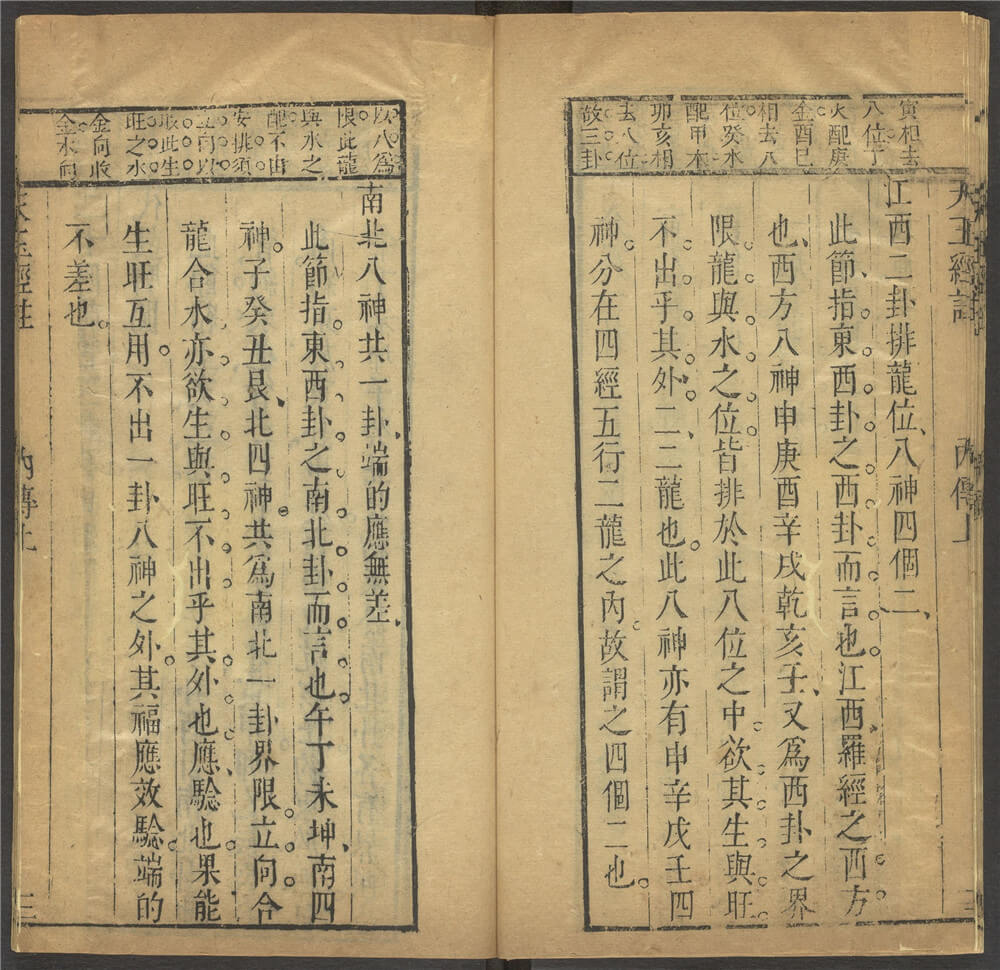 天玉經註
內傳上
寅相去
八位丁
火配庚
金酉巳
相去八
位癸水
配甲木
卯亥相
去八位
故三卦
江西二卦排龍位八神四個二
此節指東西卦之西卦而言也江西羅經之西方
也西方八神申庚酉辛戌乾亥壬又爲西卦之界
限龍與水之位皆排於此八位之中欲其生與旺
不出乎其外二二龍也此八神亦有申辛戌壬四
神分在四經五行二龍之內故謂之四個二也
以八爲
限此龍
與水之
配不出
安排須
五行以
收此生
旺之水
金向收
金水向
南北八神共一卦端的應無差
此節指東西卦之南北卦而言也午丁未坤南四
神子癸丑艮北四神共爲南北一卦界限立向合
龍合水亦欲生與旺不出乎其外也應驗也果能
生旺互用不出一卦八神之外其福應效驗端的
不差也
天玉經註
內傳上
三